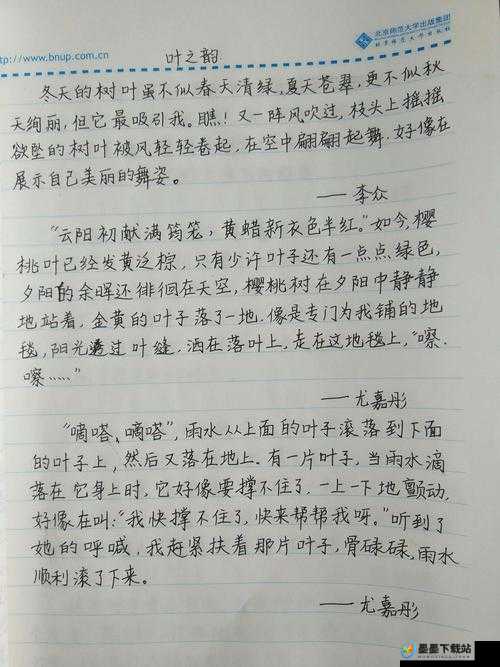 北京师范大学出版集团
北京师范大学出版社
http://www.bnup.com.cn
叶之韵
冬天的树叶虽不似春天清绿,夏天苍翠,更不似秋
天绚丽,但它最吸引我。瞧!又一阵风吹过,枝头上摇摇
欲坠的树叶被风轻轻卷起,在空中翩翩起舞,好像在
展示自己美丽的舞姿。
——李众
“云阳初献满筠笼,黄蜡新衣色半红。”如今,樱
桃叶已经发黄泛棕,只有少许叶子还有一点点绿色,
夕阳的余晖还徘徊在天空,樱桃树在夕阳中静静
地站着,金黄的叶子落了一地,像是专门为我铺的地
毯,阳光透过叶缝,洒在落叶上,走在这地毯上,“嚓,
嚓……”
——尤嘉彤
“嘀嗒、嘀嗒”,雨水从上面的叶子滚落到下面
的叶子上,然后又落在地上。有一片叶子,当雨水滴
落在它身上时,它好像要撑不住了,一上一下地颤动,
好像在叫:“我快撑不住了,快来帮帮我呀。”听到了
她的呼喊,我赶紧扶着那片叶子,骨碌碌,雨水
顺利滚了下来。
——尤嘉彤
墨墨下载站